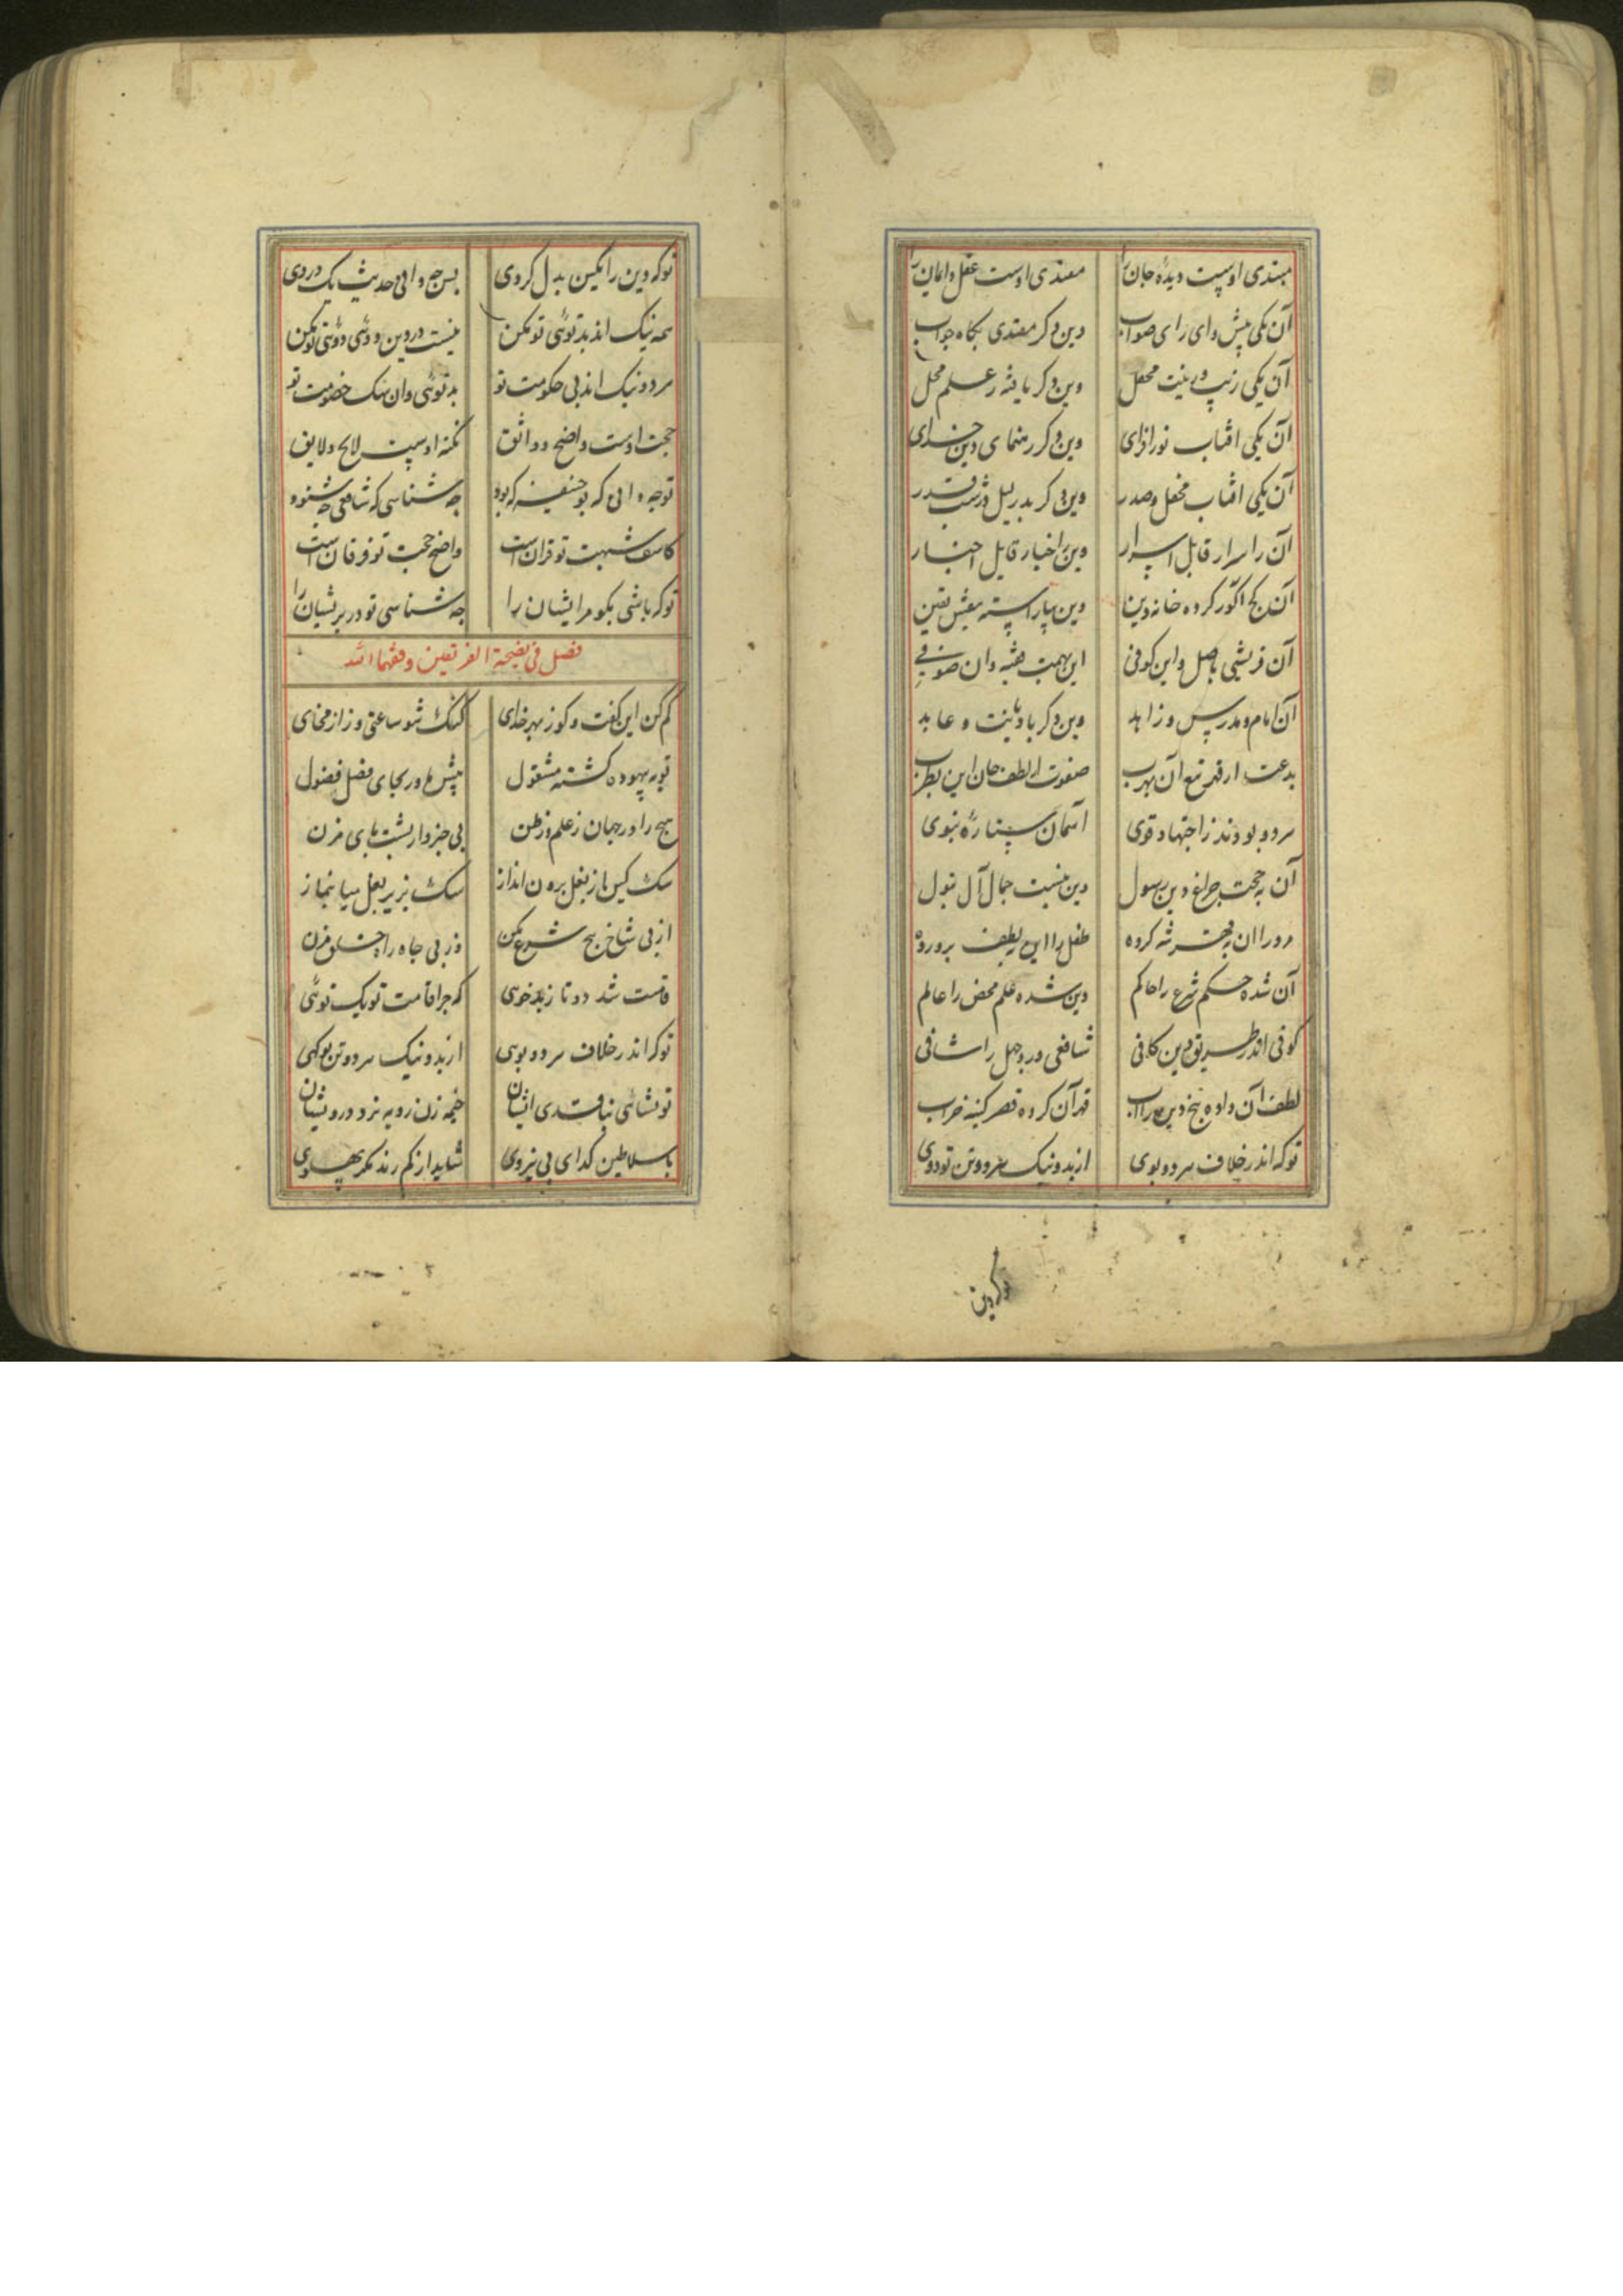 مبتدی اوست دیده جان را مقتدی اوست عقل و ایمان را
آن یکی پیش وای رای صواب وین دکر مقتدی بکاه جواب
آن یکی زیب و زینت محفل وین دکر علم محل
آن یکی افتاب نور افزای وین دکر رهنمای دین خدای
آن یکی افتاب محفل و صدر وین دکر بدر لیل و شب قدر
آن را سرار قابل اسرار وین باخبار قایل اخبار
کرده خانه دین وین بیاراسته یقین
آن قریشی باصل و این کوفی این بهمت فقیه و ان صوفی
آن امام و مدرس و زاهد وین دکر با دیانت و عابد
بدعت از قهر آن بهرب صفوت از لطف جان این بطرب
هر دو بودند ز اجتهاد قوی آسمان ستاره نبوی
آن بحجت چراغ دین رسول جمال آل بتول
کرده طفل را این بلطف پرورده
آن شده حکم شرع را حاکم وین شده علم محض را عالم
کوفی اندر طریق دین کافی شافعی درد جهل را شافی
لطف آن داده بیخ دین را آب قهر آن کرده قصر کینه خراب
توکه اندر خلاف هر دو بوی از بد و نیک هر دو تن تو دوی
توکه دین
توکه دین را بکین بدل کردی پس چه دانی حدیث یک دردی
همه نیک اند بد توئی تو مکن نیست در دین دوئی دوئی تو مکن
هر دو نیک اند بی حکومت تو بد توئی وان خصومت تو
حجت اوست واضح و واثق نکته اوست لایح و لایق
تو چه دانی که بوحنیفه که بود چه شناسی که شافعی چه شنود
کاشف شبهت تو قران است واضح حجت تو فرقان است
توکه باشی بکو مر ایشان را چه شناسی تو در پریشان را
فصل فی نصیحة الفریقین وفقهما الله
کم کن این کفت و کوز بهر خدای کنک شو ساعتی و ژاژ مخای
تو به بیهوده کشته مشغول پیش ما ور بجای فضل فضول
هیچ را در جهان ز علم و ز ظن بی خبروار پشت پای مزن
سک کین از بغل برون انداز سک بزیر بغل میا بنماز
از پی شاخ بیخ شرع مکن وز پی جاه راه خلق مزن
قامت شد دو تا ز بد خوی که چرا قامت تو یک توئی
توکه اندر خلاف هر دو بوی از بد و نیک هر دو تن
ایشان خیمه زن رو به نزد درویشان
با سلاطین کدای بی نیروی شاید ار کم زند پهلوی